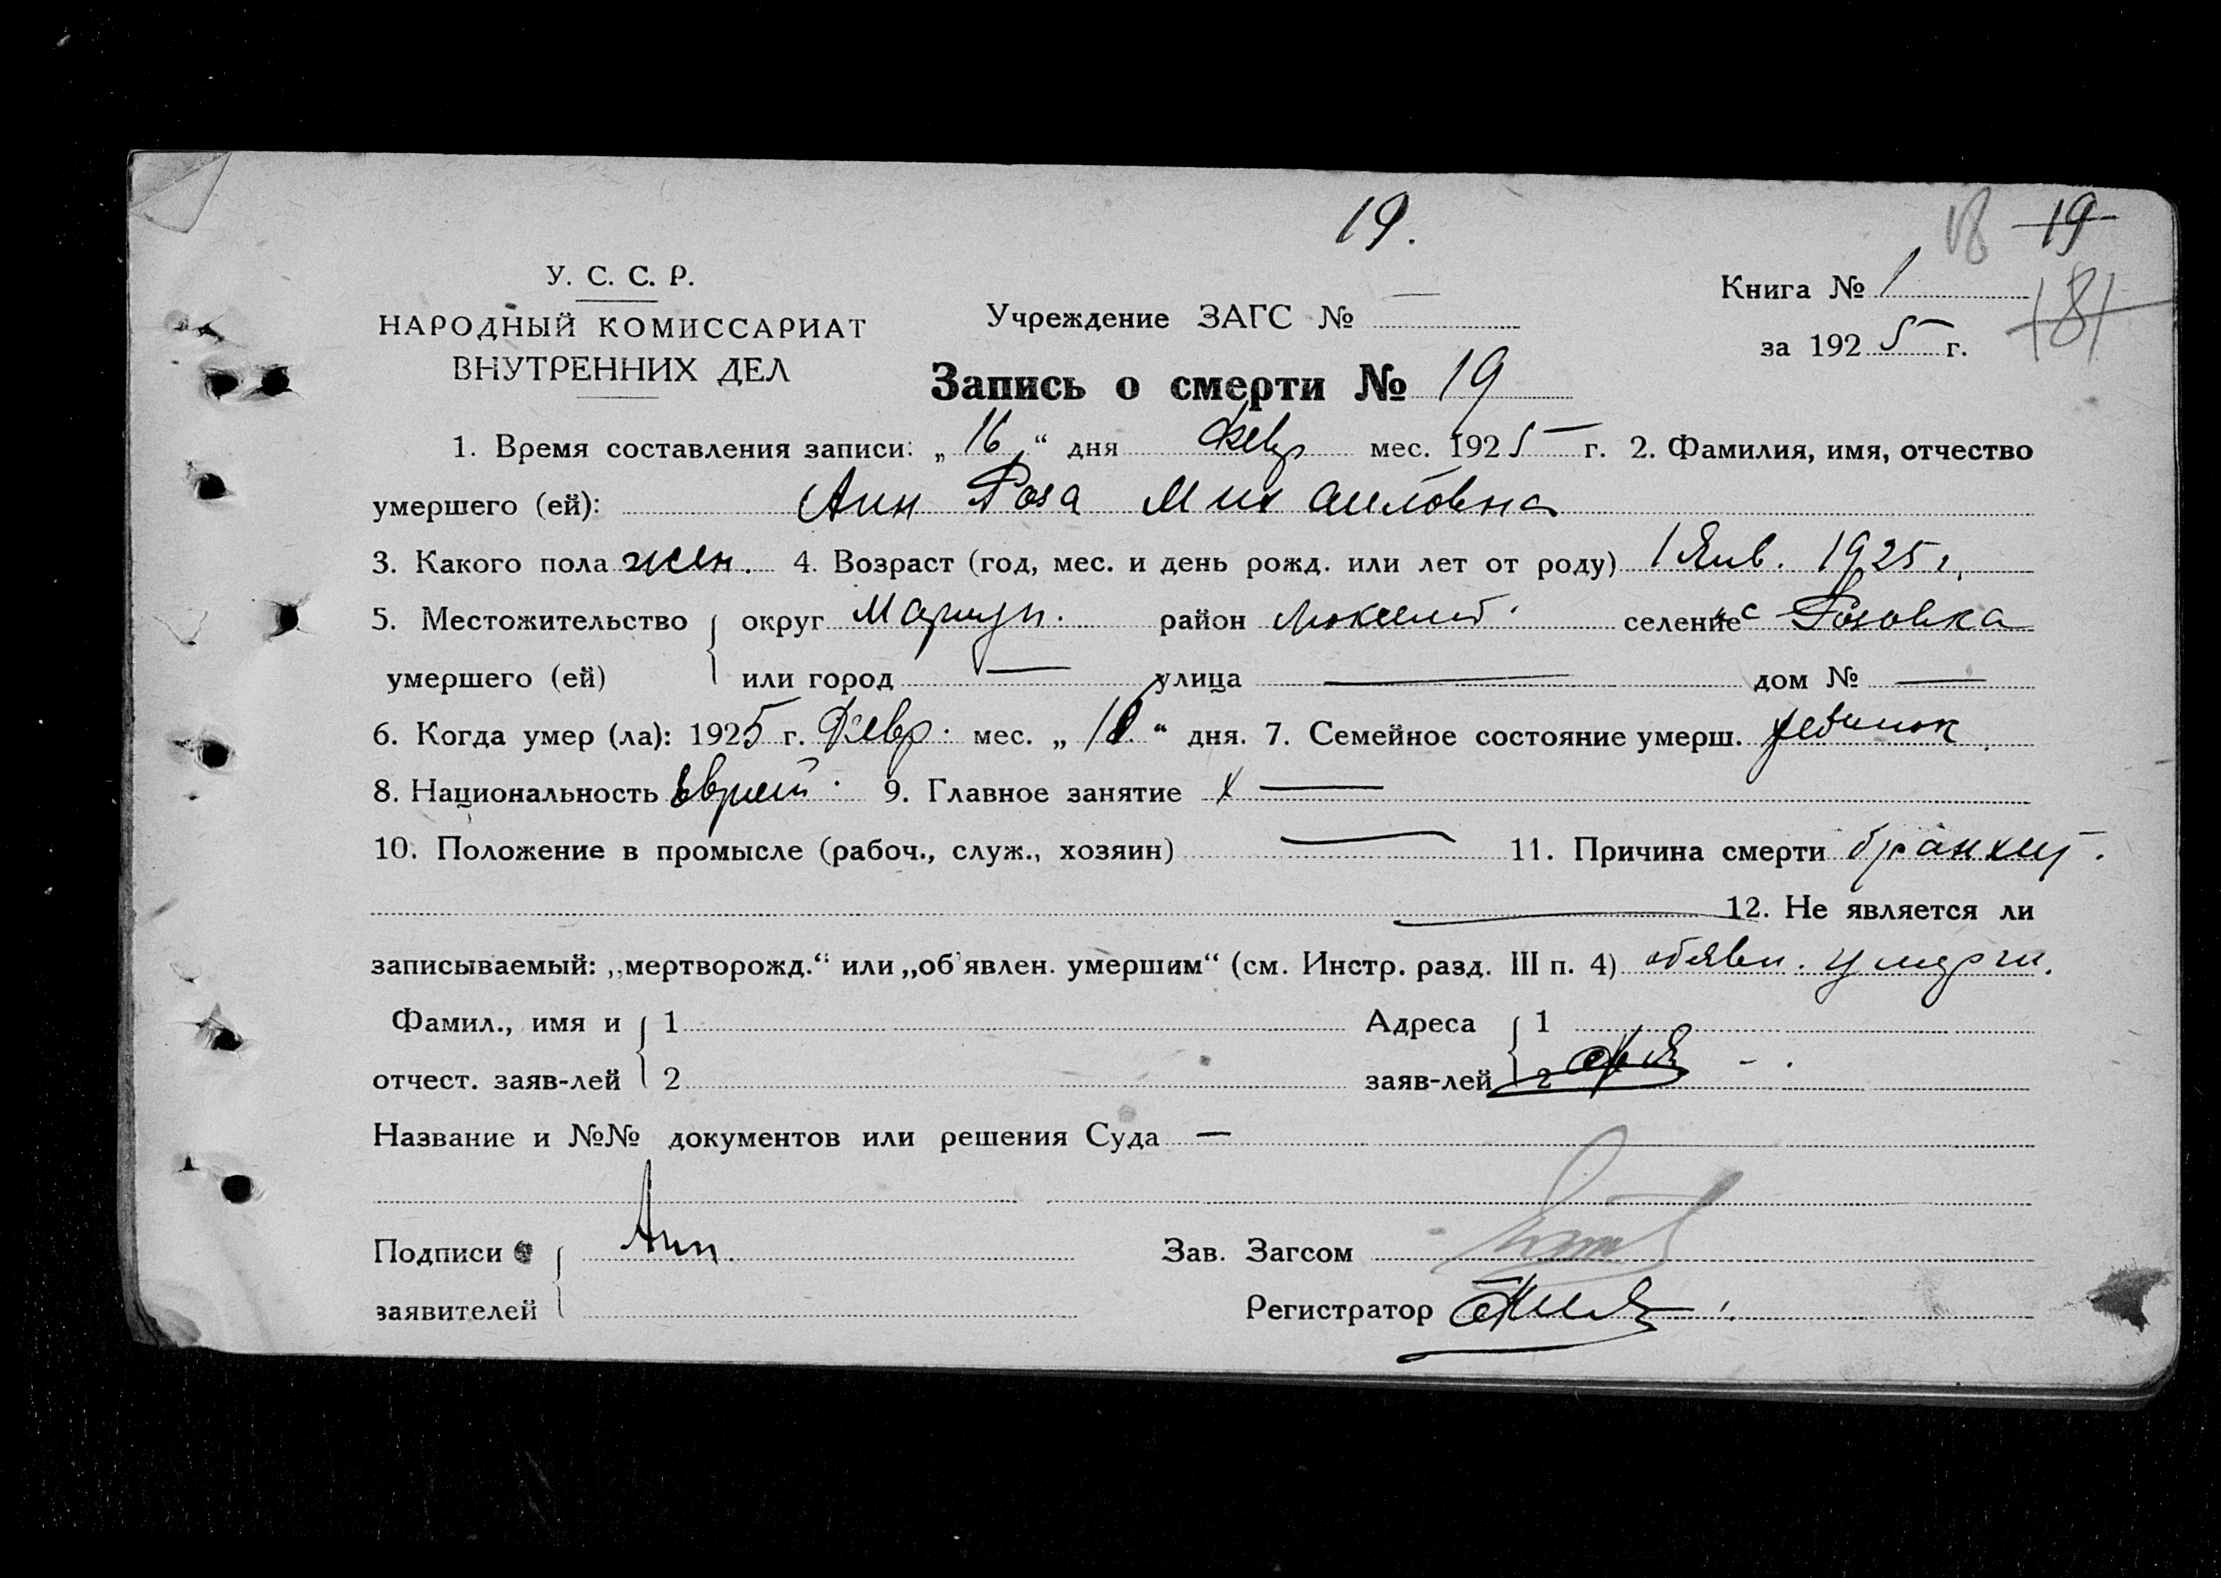 19.
18 19
У. С. С. Р.
Книга № 1
181
НАРОДНЫЙ КОМИССАРИАТ
Учреждение ЗАГС № —
ВНУТРЕННИХ ДЕЛ
за 1925 г.
Запись о смерти № 19
1. Время составления записи: „16“ дня Февр мес. 1925 г. 2. Фамилия, имя, отчество
умершего (ей): Анн Роза Михаиловна
3. Какого пола жен. 4. Возраст (год, мес. и день рожд. или лет от роду) 1 Янв. 1925 г.
5. Местожительство округ Мариуп. район селение с Розовка
умершего (ей) или город — улица — дом № —
6. Когда умер (ла): 1925 г. Февр. мес. „ “ дня. 7. Семейное состояние умерш. ребинок
8. Национальность Еврей. 9. Главное занятие х —
10. Положение в промысле (рабоч., служ., хозяин) — 11. Причина смерти бранхит.
— 12. Не является ли
записываемый: „мертворожд.“ или „об'явлен. умершим“ (см. Инстр. разд. III п. 4) обявл. умерши.
Фамил., имя и 1 Адреса 1
отчест. заяв-лей 2 заяв-лей 2
Название и №№ документов или решения Суда —
Подписи Анн Зав. Загсом
заявителей Регистратор